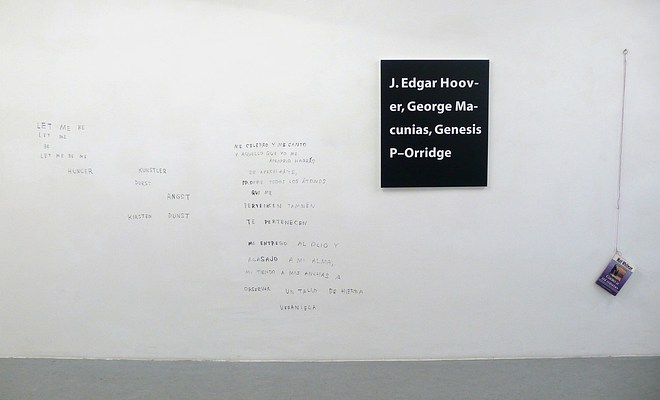 LET ME BE
LET ME
BE
LET ME BE ME
HUNGER KÜNSTLER
KUNST
ANGST
KIRSTEN DUNST
ME CELEBRO Y ME CANTO
Y AQUELLO QUE YO ME
APROPIO HABRÁS
DE APROPIARTE,
PORQUE TODOS LOS ÁTOMOS
QUE ME
PERTENECEN TAMBIÉN
TE PERTENECEN
ME ENTREGO AL OCIO Y
AGASAJO A MI ALMA,
ME TIENDO A MIS ANCHAS A
OBSERVAR UN TALLO DE HIERBA
VERANIEGA
J. Edgar Hoov-
er, George Ma-
cunias, Genesis
P–Orridge